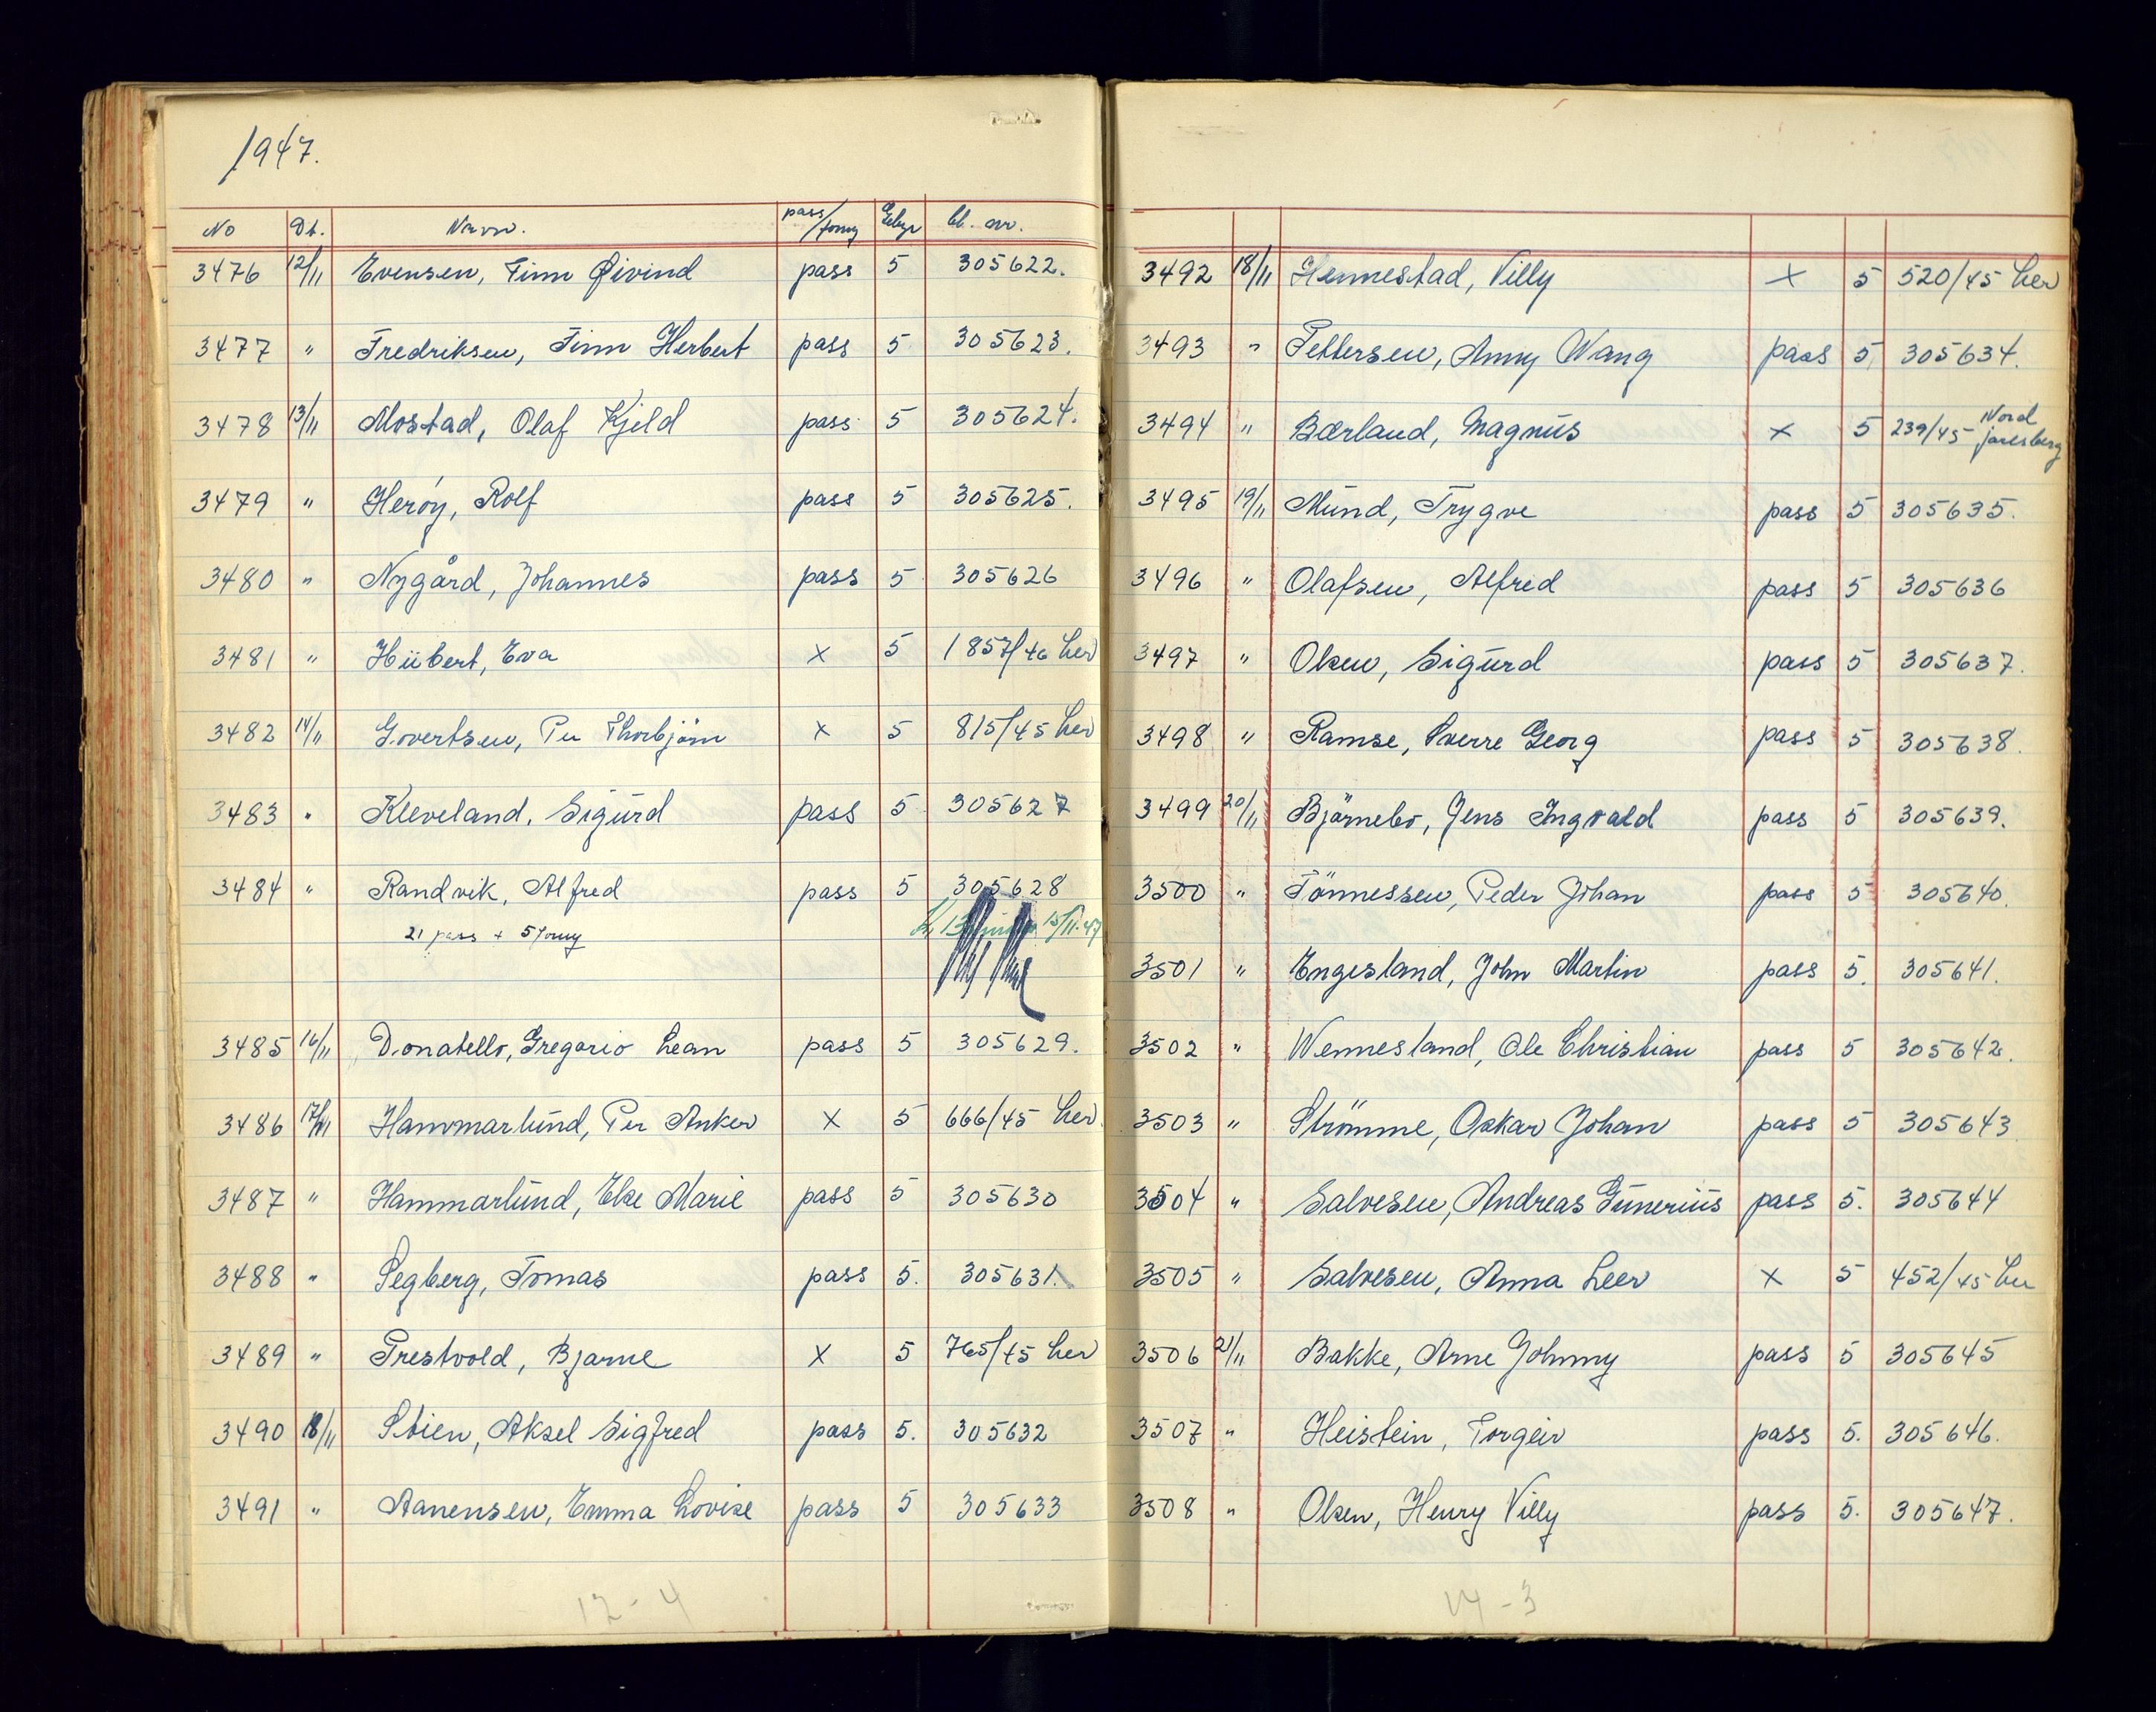 1947.
No Dt. Navn. pass/forny Gebyr bl. nr.
3476 12/11 Evensen, Finn Øivind pass 5 305622.
3477 " Fredriksen, Finn Herbert pass 5 305623.
3478 13/11 Mostad, Olaf Kjeld pass 5 305624.
3479 " Herøy, Rolf pass 5 305625.
3480 " Nygård, Johannes pass 5 305626
3481 " Hübert, Eva x 5 1857/46 her
3482 14/11 Govertsen, Per Thorbjörn x 5 815/45 her
3483 " Kleveland, Sigurd pass 5 305627
3484 " Randvik, Alfred pass 5 305628
21 pass + 5 forny 15/11-47
3485 16/11 Donatello, Gregorio Lean pass 5 305629.
3486 17/11 Hammarlund, Per Anker x 5 666/45 her
3487 " Hammarlund, Else Marie pass 5 305630
3488 " Segberg, Tomas pass 5. 305631.
3489 " Prestvold, Bjarne x 5 765/45 her
3490 18/11 Stien, Aksel Sigfred pass 5. 305632
3491 " Aanensen, Emma Lovise pass 5 305633
12-4
3492 18/11 Hennestad, Villy x 5 520/45 her
3493 " Pettersen, Anny Wang pass 5 305634.
3494 " Bærland, Magnus x 5 239/45 Nord jarlsberg
3495 19/11 Mund, Trygve pass 5 305635.
3496 " Olafsen, Alfred pass 5 305636
3497 " Olsen, Sigurd pass 5 305637.
3498 " Ramse, Sverre Georg pass 5 305638.
3499 20/11 Bjørnebo, Jens Ingvald pass 5 305639.
3500 " Tönnessen, Peder Johan pass 5 305640.
3501 " Engesland, John Martin pass 5. 305641.
3502 " Wennesland, Ole Christian pass 5 305642.
3503 " Strömme, Oskar Johan pass 5 305643
3504 " Salvesen, Andreas Gunerius pass 5. 305644
3505 " Salvesen, Anna Leer x 5 452/45 her
3506 21/11 Bakke, Arne Johnny pass 5 305645
3507 " Heistein, Torgeir pass 5. 305646.
3508 " Olsen, Henry Villy pass 5. 305647.
14-3